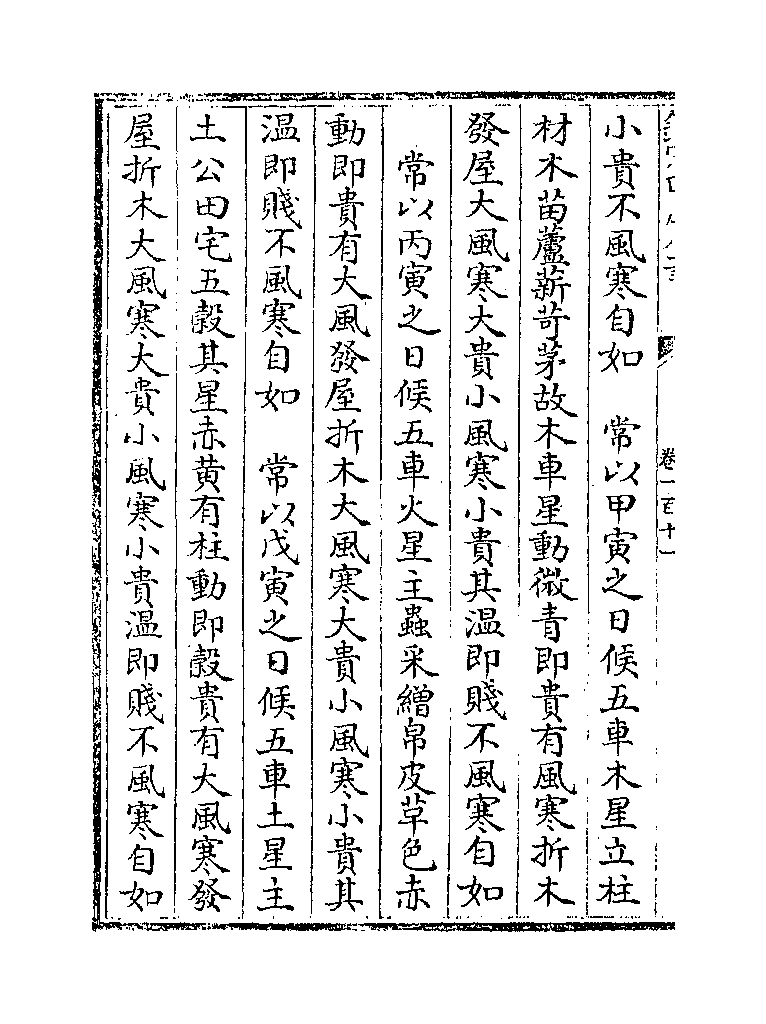 卷一百十一
小貴不風寒自如　常以甲寅之日候五車木星立柱
材木苗蘆薪苛茅故木車星動微青即貴有風寒折木
發屋大風寒大貴小風寒小貴其温即賤不風寒自如
常以丙寅之日候五車火星主蟲采繒帛皮草色赤
動即貴有大風發屋折木大風寒大貴小風寒小貴其
温即賤不風寒自如　常以戊寅之日候五車土星主
土公田宅五穀其星赤黄有柱動即穀貴有大風寒發
屋折木大風寒大貴小風寒小貴温即賤不風寒自如